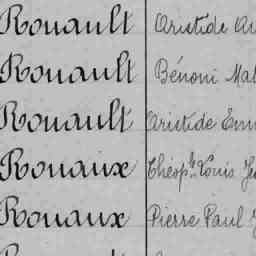 Rouault Aristide
Rouault Bénoni
Rouault Aristide
Rouaux Théop.le Louis
Rouaux Pierre Paul